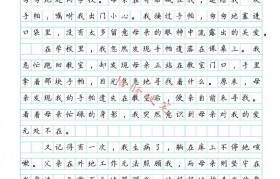 手帕，嘱咐我出门小心。我接过手帕，匆匆地塞进
口袋里，没有太多留意母亲的眼神中流露出的关爱。
在学校里，我忽然发现手帕遗落在课桌上。我
急忙跑向教室，却发现母亲站在教室门口，手里
拿着那块手帕，目光焦急地寻找着什么。原来，母
亲发现我的手帕遗失在教室后，便亲自前来寻找。
看着母亲忙碌的身影，我突然意识到母亲对我的爱
无处不在。
又记得有一次，我生病了，躺在床上不停地咳
嗽。父亲在外地工作无法照顾我，而母亲则坚守在